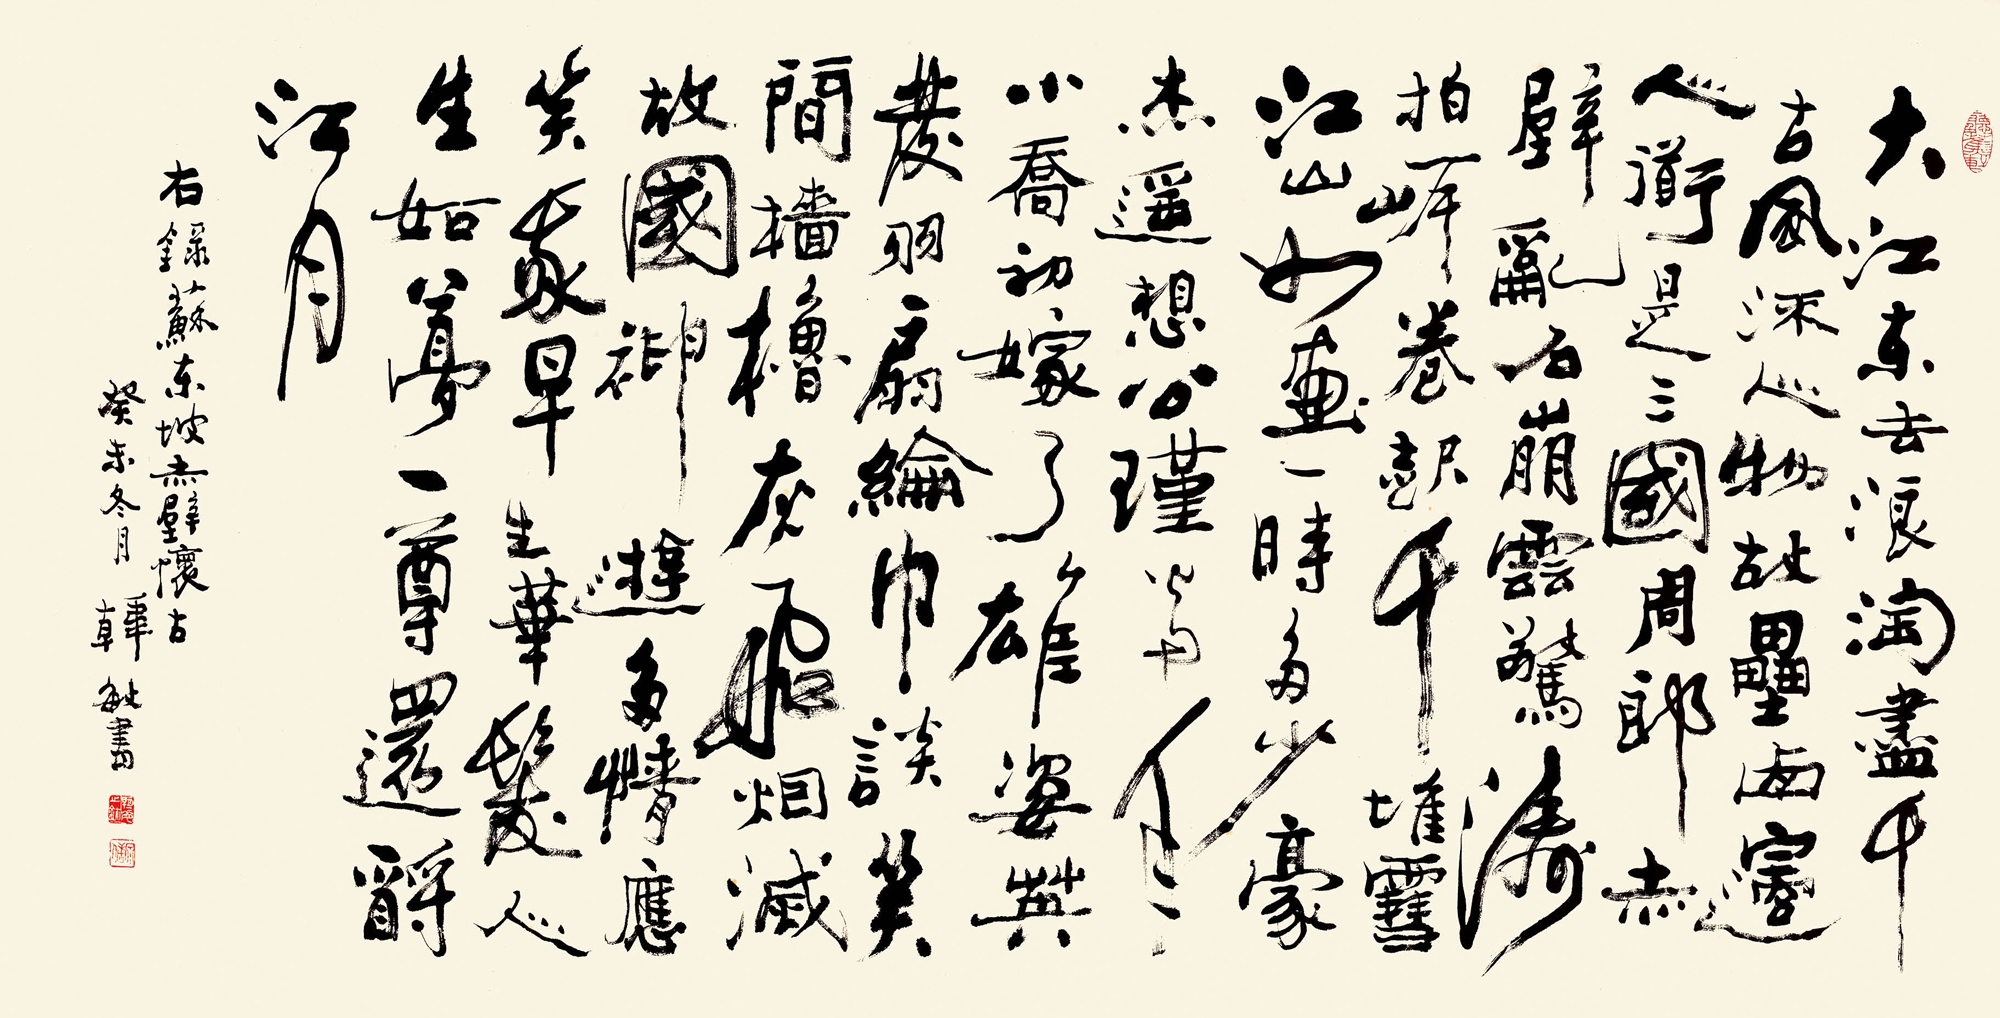 大江东去浪淘盡千
古風流人物故壘西邊
人道是三國周郎赤
壁亂石崩雲驚濤
拍岸卷起千堆雪
江山如畫一時多少豪
杰遥想公瑾當年
小喬初嫁了雄姿英
發羽扇綸巾談笑
間檣櫓灰飛烟滅
故國神遊多情應
笑我早生華髮人
生如夢一尊還酹
江月
右錄蘇东坡赤壁懷古
癸未冬月韓敏書